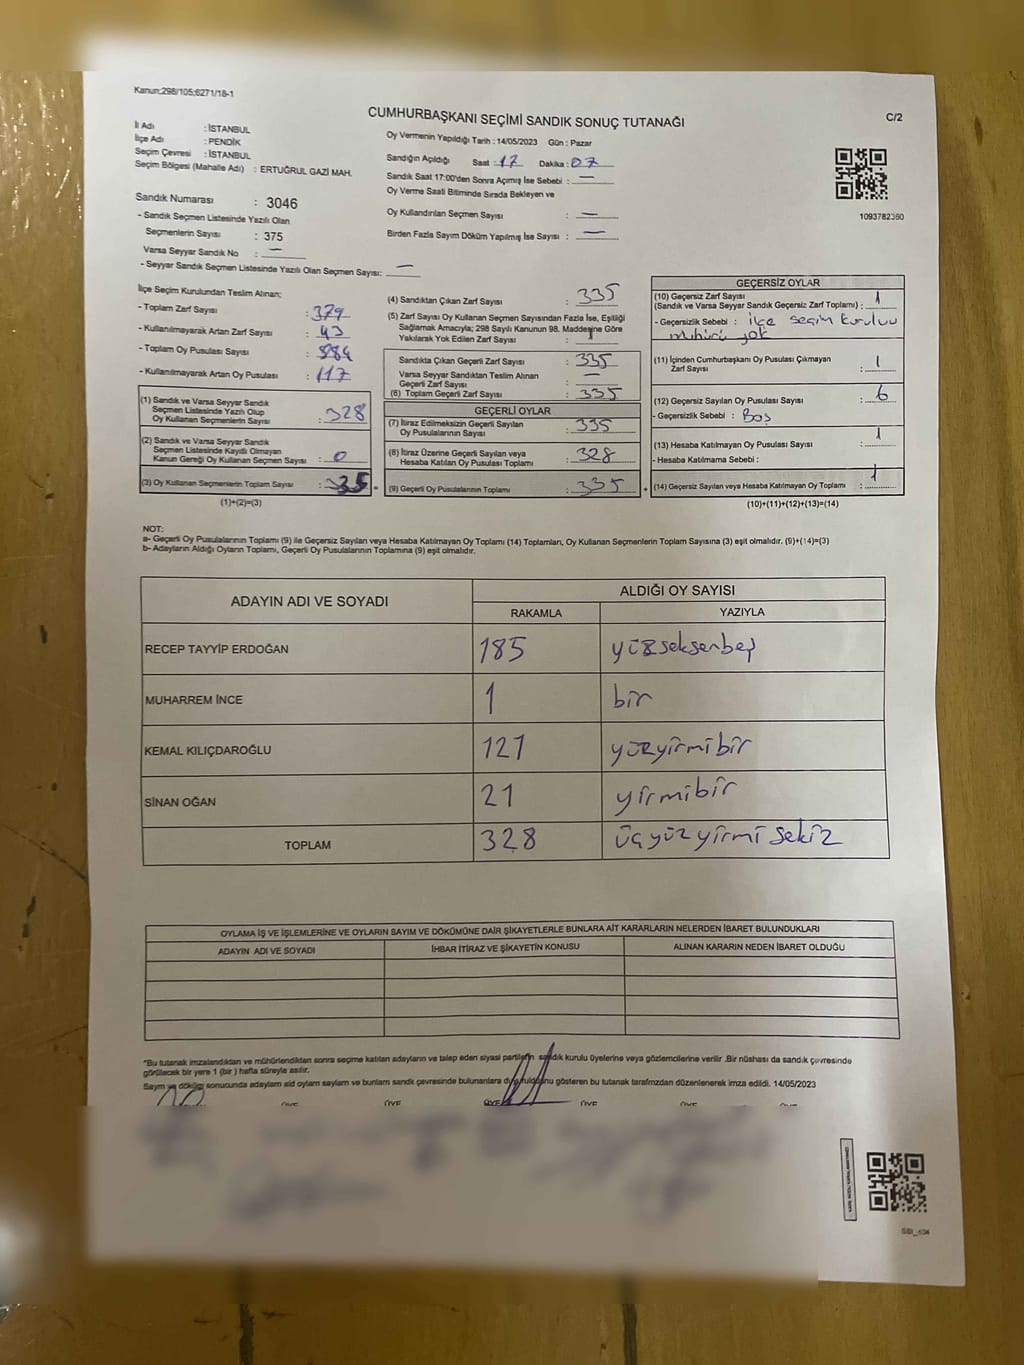 Kanun;298/105;6271/18-1
CUMHURBAŞKANI SEÇİMİ SANDIK SONUÇ TUTANAĞI
C/2
İl Adı : İSTANBUL
İlçe Adı : PENDİK
Seçim Çevresi : İSTANBUL
Seçim Bölgesi (Mahalle Adı) : ERTUĞRUL GAZİ MAH.
Sandık Numarası : 3046
- Sandık Seçmen Listesinde Yazılı Olan
Seçmenlerin Sayısı : 375
Varsa Seyyar Sandık No : —
- Seyyar Sandık Seçmen Listesinde Yazılı Olan Seçmen Sayısı: —
Oy Vermenin Yapıldığı Tarih : 14/05/2023 Gün : Pazar
Sandığın Açıldığı Saat : 17 Dakika : 07
Sandık Saat 17:00'den Sonra Açımış İse Sebebi : —
Oy Verme Saati Bitiminde Sırada Bekleyen ve
Oy Kullandırılan Seçmen Sayısı : —
Birden Fazla Sayım Döküm Yapılmış İse Sayısı : —
1093782360
İlçe Seçim Kurulundan Teslim Alınan;
- Toplam Zarf Sayısı : 379
- Kullanılmayarak Artan Zarf Sayısı : 43
- Toplam Oy Pusulası Sayısı :
- Kullanılmayarak Artan Oy Pusulası : 117
(1) Sandık ve Varsa Seyyar Sandık
Seçmen Listesinde Yazılı Olup
Oy Kullanan Seçmenlerin Sayısı : 328
(2) Sandık ve Varsa Seyyar Sandık
Seçmen Listesinde Kayıtlı Olmayan
Kanun Gereği Oy Kullanan Seçmen Sayısı : 0
(3) Oy Kullanan Seçmenlerin Toplam Sayısı :
(1)+(2)=(3)
(4) Sandıktan Çıkan Zarf Sayısı : 335
(5) Zarf Sayısı Oy Kullanan Seçmen Sayısından Fazla İse, Eşitliği
Sağlamak Amacıyla; 298 Sayılı Kanunun 98. Maddesine Göre
Yakılarak Yok Edilen Zarf Sayısı :
Sandıkta Çıkan Geçerli Zarf Sayısı : 335
Varsa Seyyar Sandıktan Teslim Alınan
Geçerli Zarf Sayısı : —
(6) Toplam Geçerli Zarf Sayısı : 335
GEÇERLİ OYLAR
(7) İtiraz Edilmeksizin Geçerli Sayılan
Oy Pusulalarının Sayısı : 335
(8) İtiraz Üzerine Geçerli Sayılan veya
Hesaba Katılan Oy Pusulası Toplamı : 328
(9) Geçerli Oy Pusulalarının Toplamı : 335
GEÇERSİZ OYLAR
(10) Geçersiz Zarf Sayısı
(Sandık ve Varsa Seyyar Sandık Geçersiz Zarf Toplamı) : 1
- Geçersizlik Sebebi : ilçe seçim kurulu
mühürü yok
(11) İçinden Cumhurbaşkanı Oy Pusulası Çıkmayan
Zarf Sayısı : 1
(12) Geçersiz Sayılan Oy Pusulası Sayısı : 6
- Geçersizlik Sebebi : Boş
(13) Hesaba Katılmayan Oy Pusulası Sayısı : 1
- Hesaba Katılmama Sebebi :
(14) Geçersiz Sayılan veya Hesaba Katılmayan Oy Toplamı : 1
(10)+(11)+(12)+(13)=(14)
NOT:
a- Geçerli Oy Pusulalarının Toplamı (9) ile Geçersiz Sayılan veya Hesaba Katılmayan Oy Toplamı (14) Toplamları, Oy Kullanan Seçmenlerin Toplam Sayısına (3) eşit olmalıdır. (9)+(14)=(3)
b- Adayların Aldığı Oyların Toplamı, Geçerli Oy Pusulalarının Toplamına (9) eşit olmalıdır.
ADAYIN ADI VE SOYADI
ALDIĞI OY SAYISI
RAKAMLA YAZIYLA
RECEP TAYYİP ERDOĞAN 185 yüzseksenbeş
MUHARREM İNCE 1 bir
KEMAL KILIÇDAROĞLU 121 yüzyirmibir
SİNAN OĞAN 21 yirmibir
TOPLAM 328 üçyüzyirmi sekiz
OYLAMA İŞ VE İŞLEMLERİNE VE OYLARIN SAYIM VE DÖKÜMÜNE DAİR ŞİKAYETLERLE BUNLARA AİT KARARLARIN NELERDEN İBARET BULUNDUKLARI
ADAYIN ADI VE SOYADI
İHBAR İTİRAZ VE ŞİKAYETİN KONUSU
ALINAN KARARIN NEDEN İBARET OLDUĞU
*Bu tutanak imzalandıktan ve mühürlendikten sonra seçime katılan adayların ve talep eden siyasi partilerin sandık kurulu üyelerine veya gözlemcilerine verilir .Bir nüshası da sandık çevresinde
görülecek bir yere 1 (bir ) hafta süreyle asılır.
Sayım ve döküm sonucunda adayların aid oyların sayıları ve bunların sandık çevresinde bulunanlara duyurulduğunu gösteren bu tutanak tarafımızdan düzenlenerek imza edildi. 14/05/2023
ÜYE ÜYE ÜYE ÜYE ÜYE ÜYE